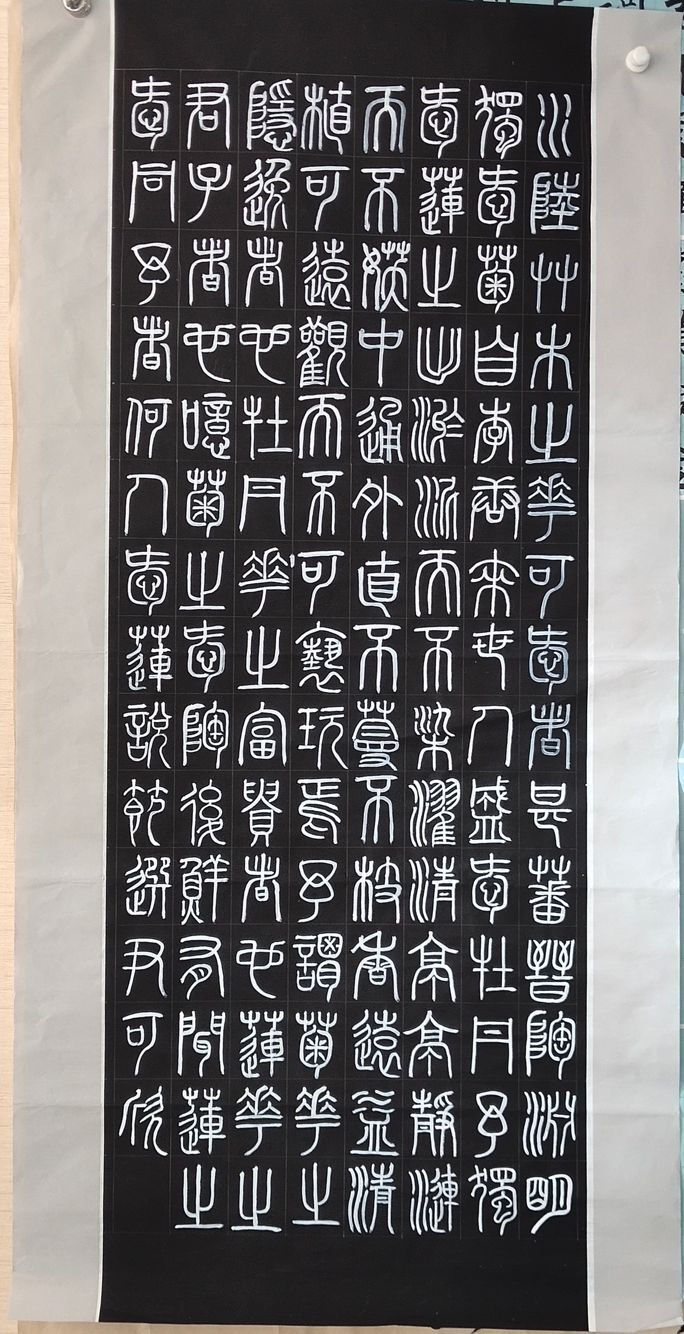 水陸艸木之華可愛者甚蕃晉陶淵明
獨愛菊自李唐來世人盛愛牡丹予獨
愛蓮之出淤泥而不染濯清亭亭靜漣
而不妖中通外直不蔓不枝香遠益清
植可遠觀而不可褻玩焉予謂菊華之
隱逸者也牡丹華之富貴者也蓮華之
君子者也噫菊之愛陶後鮮有聞蓮之
愛同予者何人愛蓮說節選尹可欣